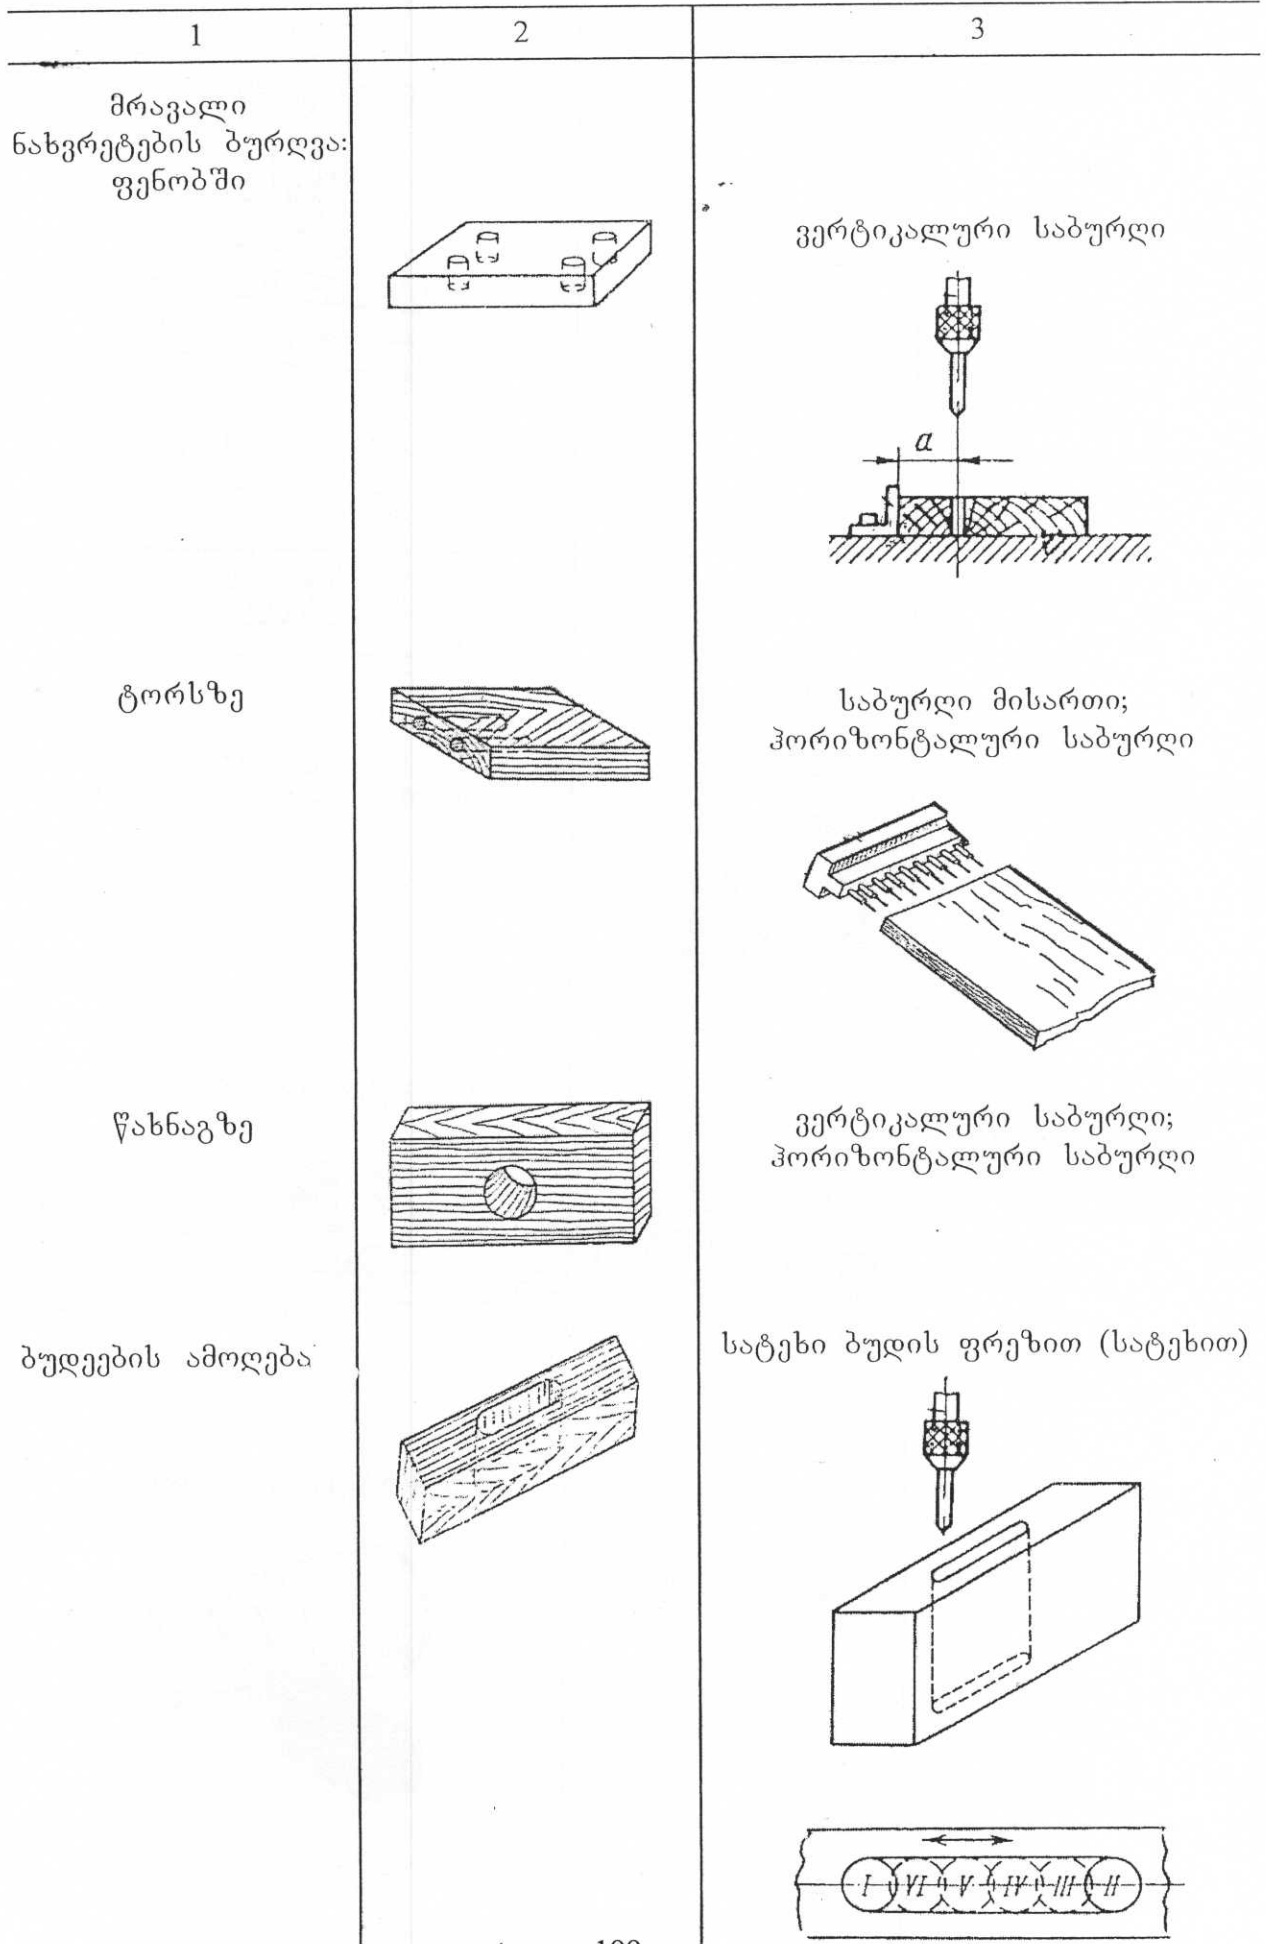 1
2
3
მრავალი
ნახვრეტების ბურღვა:
ფენობში
ვერტიკალური საბურღი
a
ტორსზე
საბურღი მისართი;
ჰორიზონტალური საბურღი
წახნაგზე
ვერტიკალური საბურღი;
ჰორიზონტალური საბურღი
ბუდეების ამოღება
სატეხი ბუდის ფრეზით (სატეხით)
I VI V IV III II